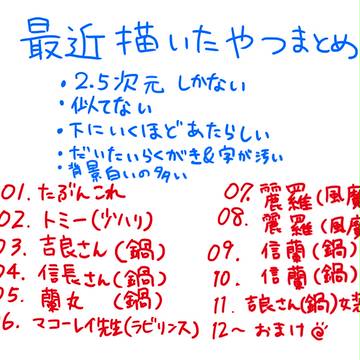 最近描いたやつまとめ
・2.5次元 しかない
・似てない
・下にいくほどあたらしい
・だいたいらくがき&字が汚い
・背景白いの多い
01. たぶんこれ
02. トミー(少ハリ)
03. 吉良さん(鍋)
04. 信長さん(鍋)
05. 蘭丸 (鍋)
06. マコーレイ先生(ラビリンス)
07. 麗羅(風魔
08. 麗羅(風魔
09. 信蘭(鍋)
10. 信蘭(鍋)
11. 吉良さん(鍋)女装
12~ おまけ